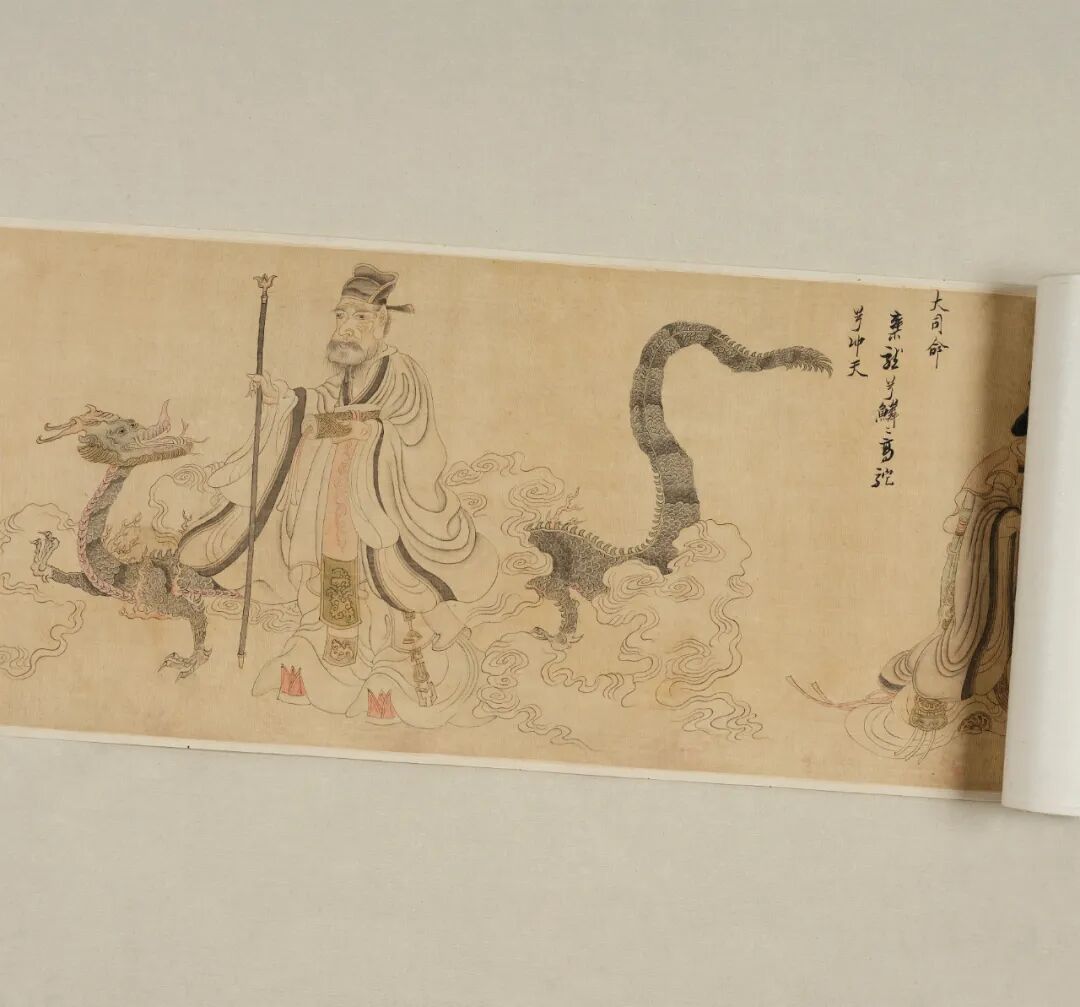 大司命
乘龍兮鱗〻高駝
兮冲天